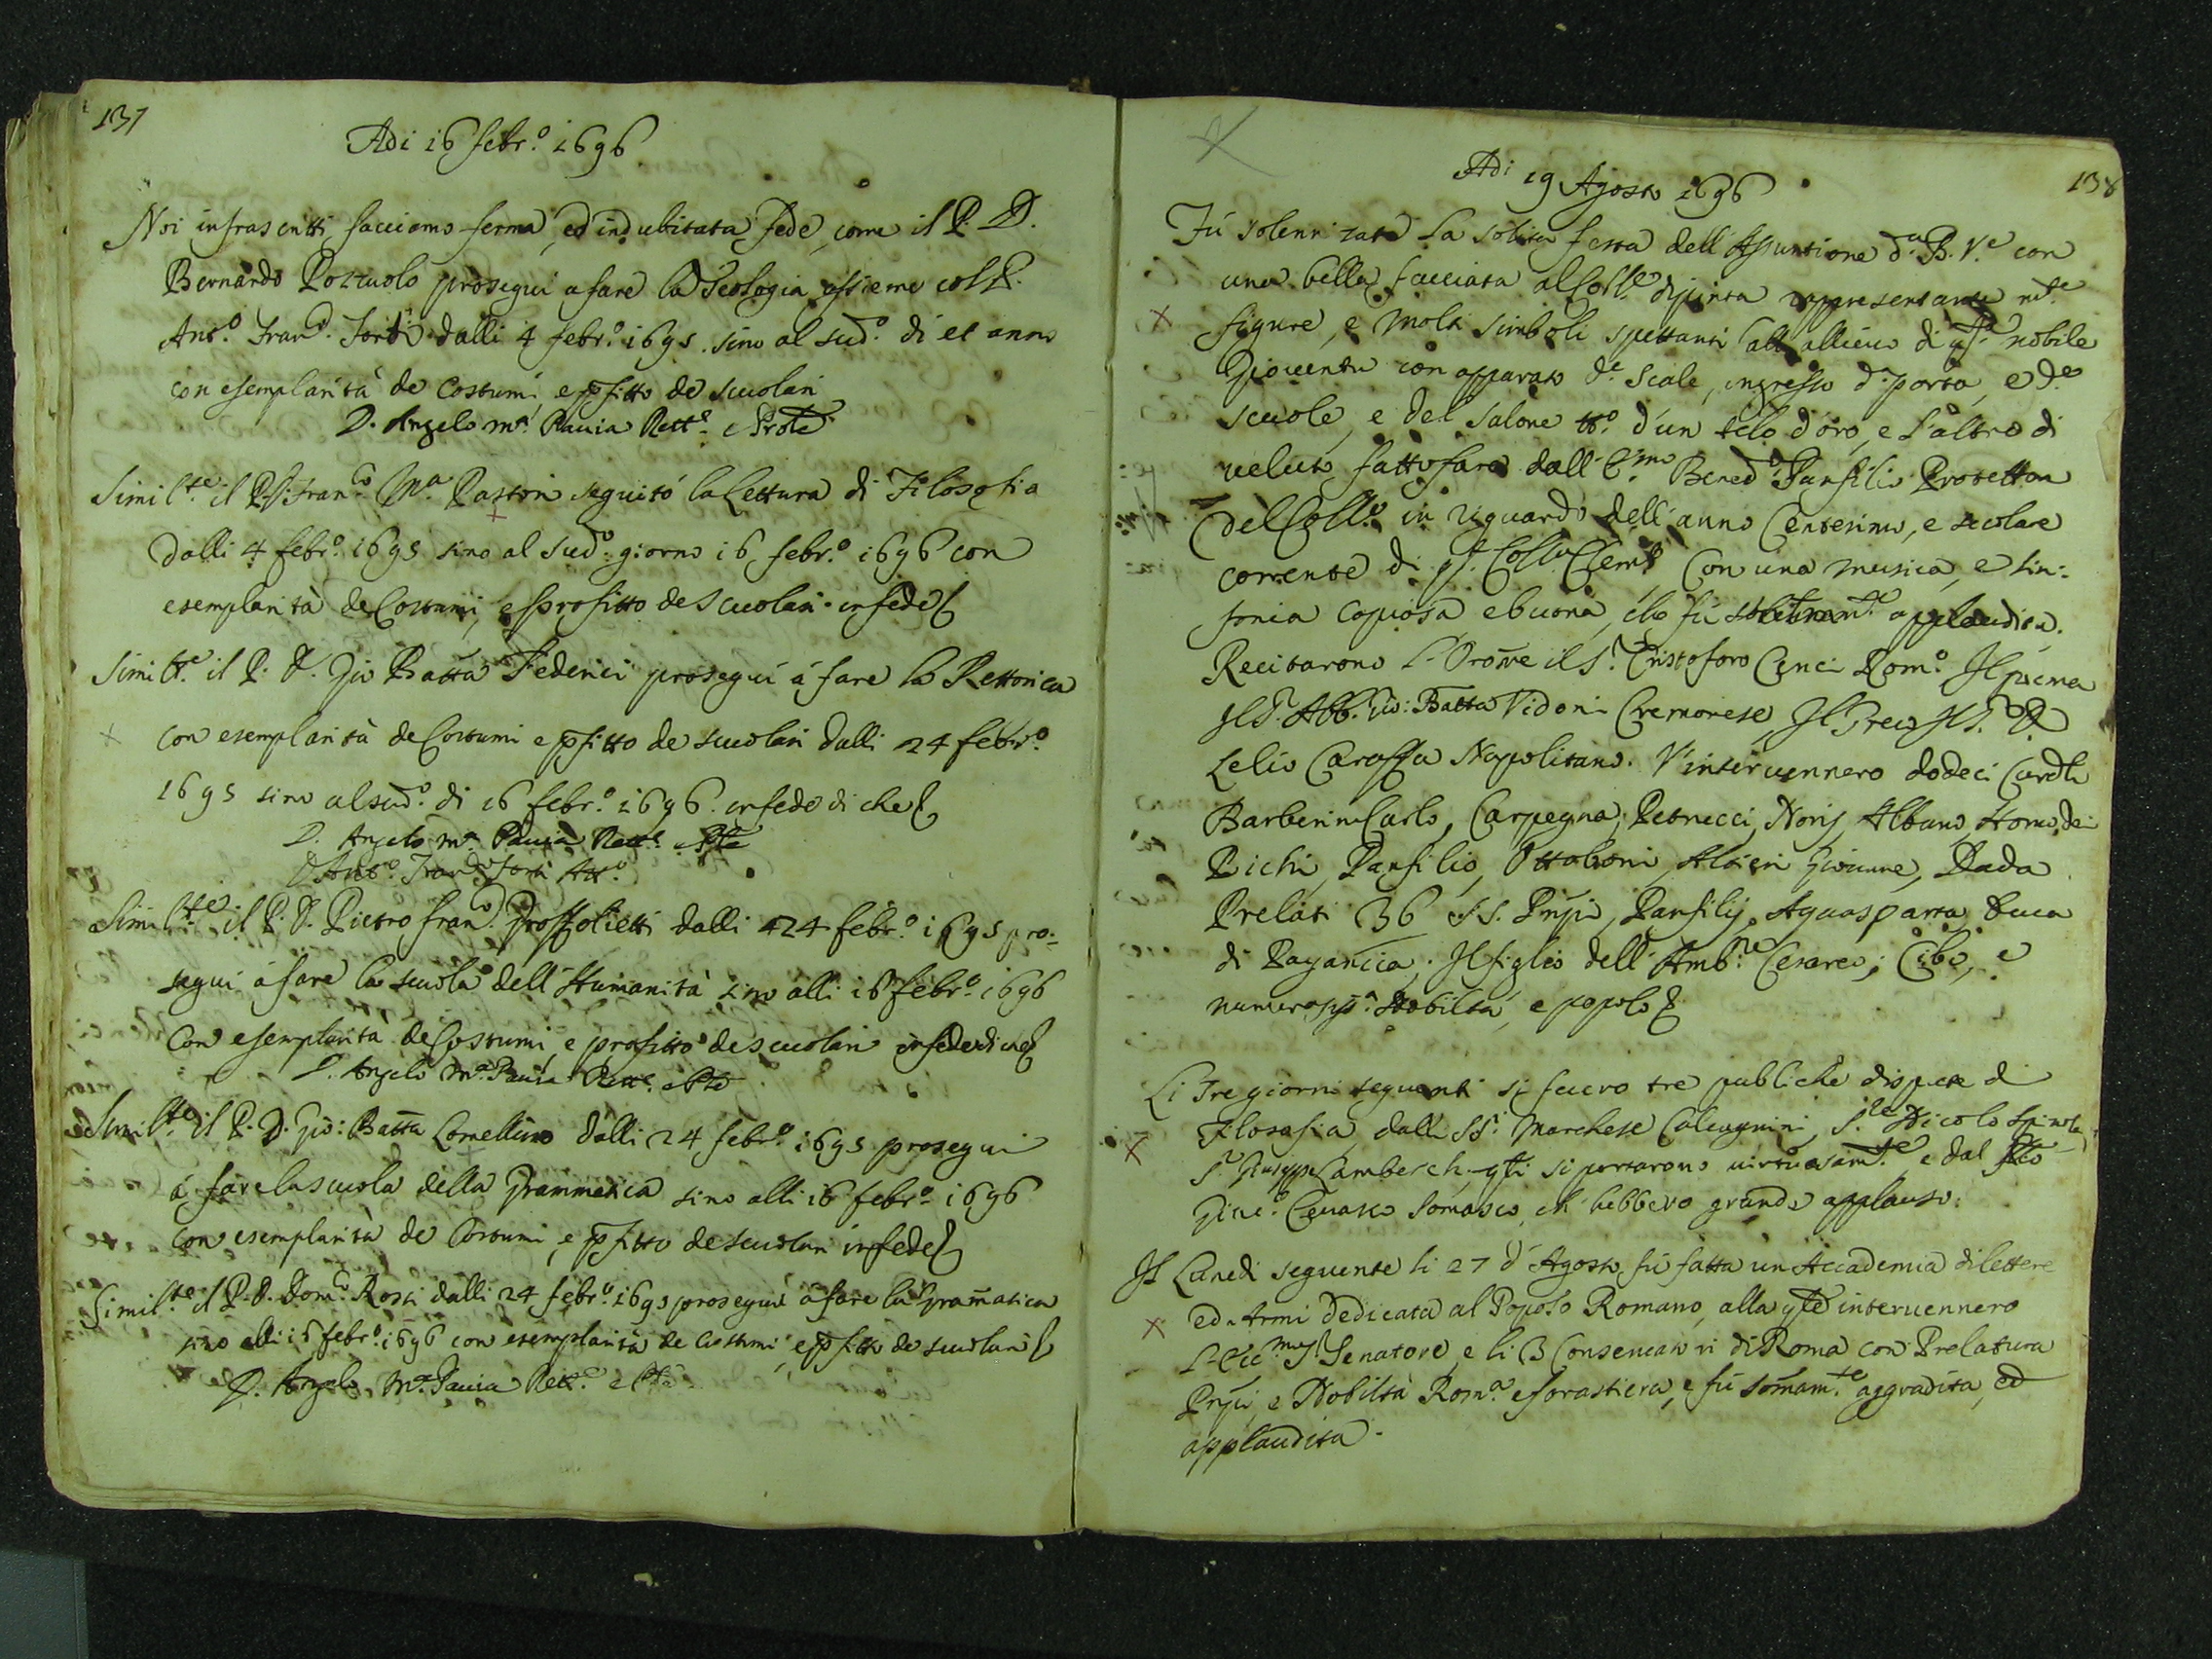 137
Adi 16 febr.o 1696
Noi infrascritti facciamo ferma, ed indubitata fede, come il P. D.
Bernardo Pozzuolo proseguì a fare la Teologia assieme col P.
Ant.o Fran.co Forti dalli 4 febr.o 1695. sino al sud.o dì et anno
con esemplarità de costumi, e pfitto de scuolari
D. Angelo M.a Pauia Rett.e e Prote
Simil.te il P. D. Fran.co M.a Pastori seguitò la Lettura di Filosofia
dalli 4 febr.o 1695 sino al sud.o giorno 16 febr.o 1696 con
esemplarità de Costumi, e profitto de Scuolari. in fede
Simil.te il P. D. Gio Batta Federici proseguì à fare la Rettorica
con esemplarità de Costumi e pfitto de scuolari dalli 24 febr.o
1695 sino al sud.o dì 16 febr.o 1696. in fede di che
D. Angelo M.a Pauia Rett.e e Pte
D. Ant.o Fran.co Forti Att.o
Simil.te il P. D. Pietro Fran.co dalli 24 febr.o 1695 pro:
seguì à fare la scuola dell'Humanità sino alli 16 febr.o 1696
Con esemplarità de Costumi, e profitto de scuolari in fede di che
D. Angelo M.a Pauia Rett.e e Pte
Simil.te il P. D. Gio: Batta Lomellino dalli 24 febr.o 1695 proseguì
à fare la scuola della Grammatica sino alli 16 febr.o 1696
con esemplarità de Costumi, e pfitto de scuolari in fede
Simil.te il P. D. Dom.co Rossi dalli 24 febr.o 1695 proseguì à fare la Gramatica
sino alli 16 febr.o 1696 con esemplarità de Costumi, e pfitto de scuolari
D. Angelo M.a Pauia Rett.e e Pte
138
Adi 19 Agosto 1696
Fù solennizata la solita festa dell'Assuntione d.a B. V.e con
una bella facciata al Coll.o dipinta rappresentante
figure, e molti simboli spettanti all'allieuo di q.sta nobile
Giouentù con apparato d.e Scale, ingresso d.a porta, e d.e
scuole, e del Salone tt.o d'un telo d'oro, e l'altro di
veluto, fatto fare dall'E.mo Bened.o Panfilio Protettore
del Coll.o in riguardo dell'anno Centesimo, e secolare
corrente di q.sto Coll.o Clem.o Con una musica, e sin:
fonia copiosa e buona, che fù applaudita.
Recitarono l'Orone il S.r Cristoforo Cenci Rom.o Il poema
Il S.r Abb. Gio: Batta Vidoni Cremonese, Il Greco Il S. D.
Lelio Caraffa Napolitano. V'interuennero dodeci Cardli
Barberini Carlo, Carpegna, Petrucci, Noris, Albano, Homodei
Bichi, Panfilio, Ottoboni, Altieri Giouane, Dada
Prelati 36 SS. Pnpi, Panfilij, Aquasparta, Duca
di Paganica, Il figlio dell'Amb.re Cesareo, Cibo, e
numerosiss.a Nobiltà, e popolo
Li Tre giorni seguenti si fecero tre publiche dispute di
Filosofia dalli SS.i Marchese Calcagnini, S.r Nicolo Spinola,
S.r Giuseppe Lamberch, q.sti si portarono uirtuosam.te e dal
Ceuasco Somasco, ch'hebbero grande applauso.
Il Lunedi seguente li 27 d'Agosto fù fatta un Accademia di lettere
ed Armi Dedicata al Popolo Romano, alla q.le interuennero
l'Ecc.mo S.r Senatore, e li 3 Conseruatori di Roma con Prelatura
Pnpi, e Nobiltà Rom.a e forastiera, e fù somam.te aggradita, ed
applaudita.